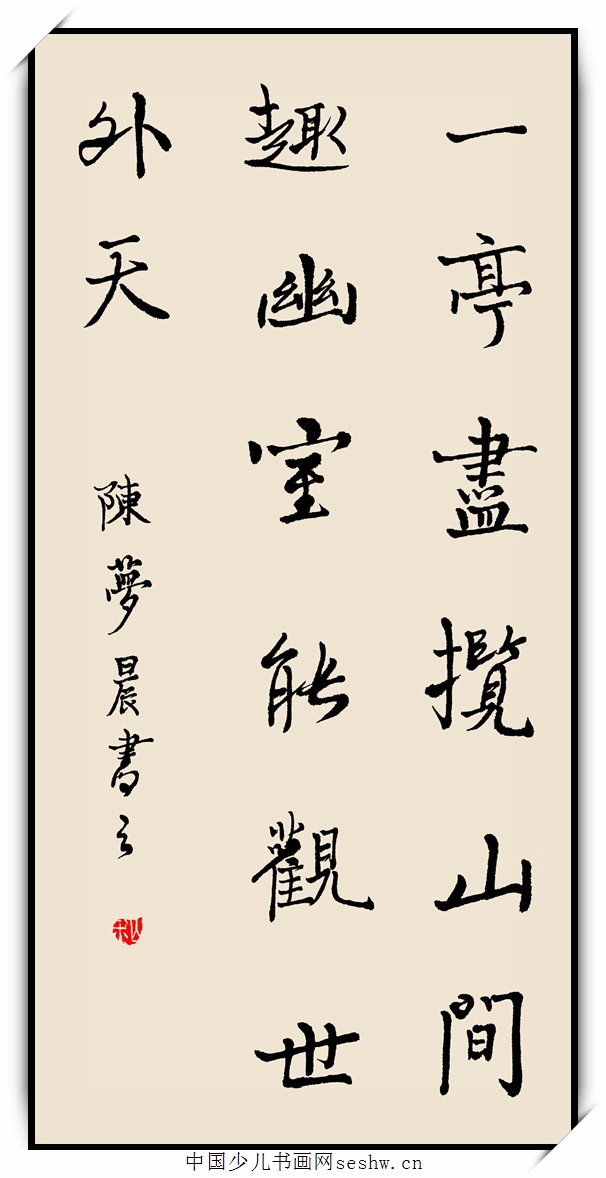 一亭盡攬山間
趣幽室能觀世
外天
陳夢晨書之
中国少儿书画网seshw.cn